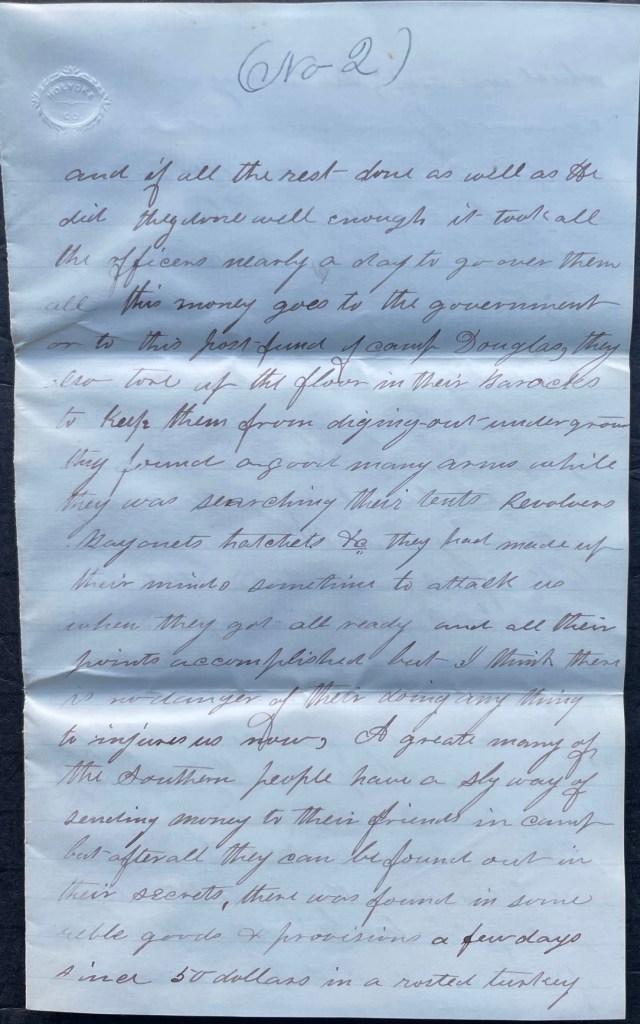 (No 2)
HOLYOKE
CO
and if all the rest done as well as He
did they done well enough it took all
the officers nearly a day to go over them
all this money goes to the government
or to this post-fund of camp Douglas, they
also tore up the floor in their Baracks
to keep them from diging-out-undergroun
they found a good many arms while
they was searching their tents Revolvers
Bayonets hatchets &c they had made up
their minds sometime to attack us
when they got all ready and all their
points accomplished but I think there
is no danger of their doing any thing
to injure us now, A greate many of
the Southern people have a sly way of
sending money to their friends in camp
but after all they can be found out in
their secrets, there was found in some
goods & provisions a few days
since 50 dollars in a rosted turkey